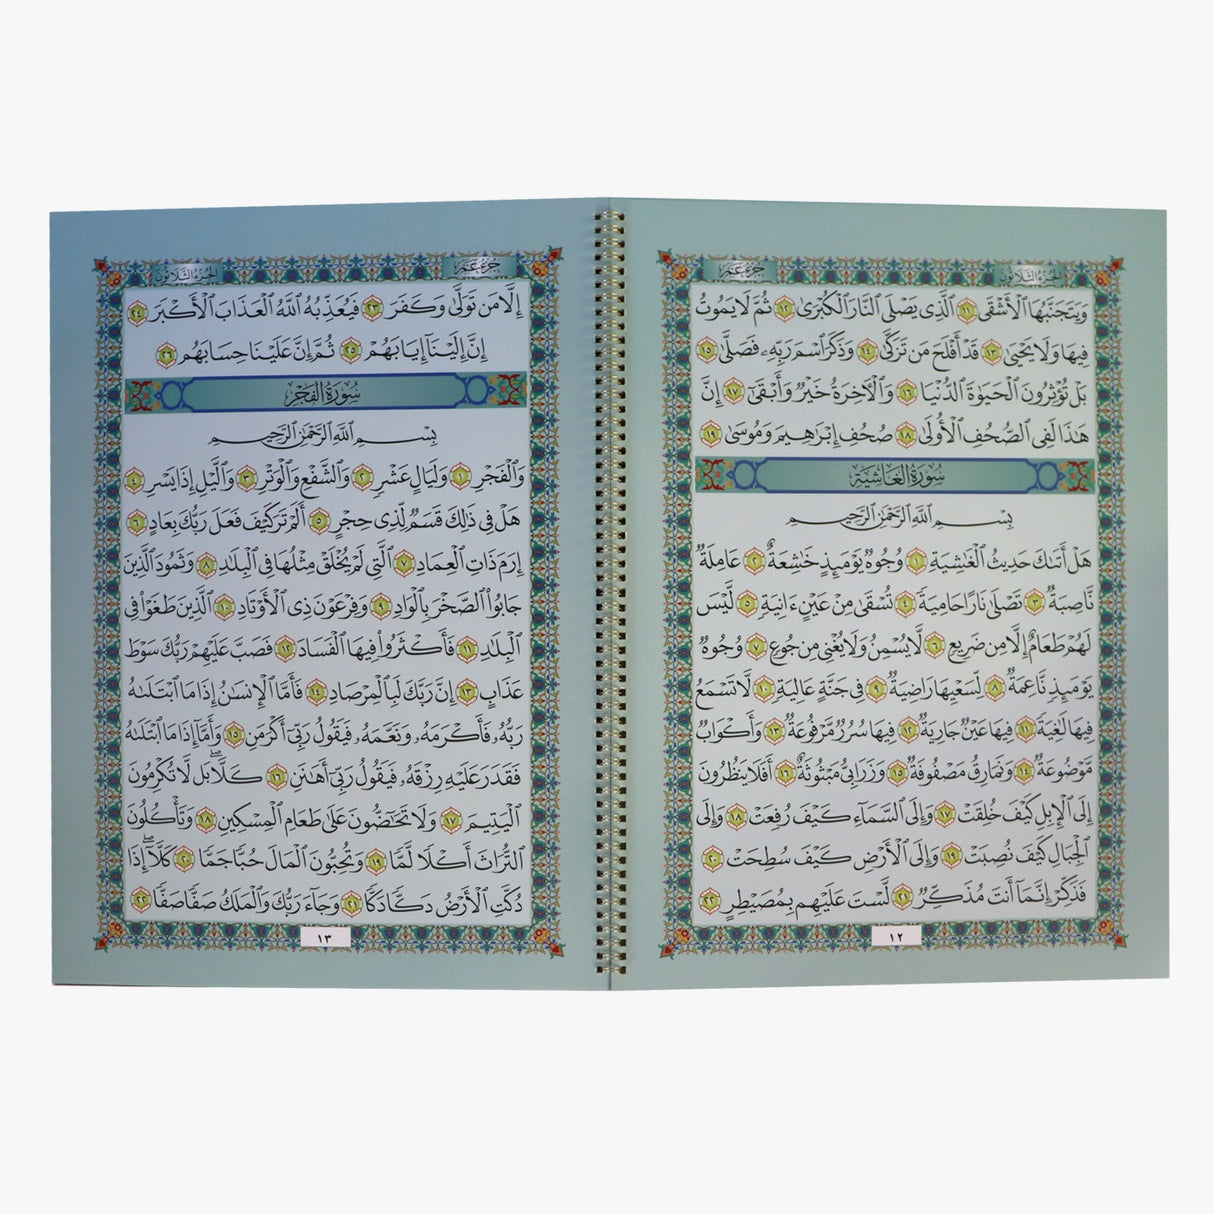 الجزء الثلاثون
جزء عم
وَيَتَجَنَّبُهَا ٱلْأَشْقَى ١١ ٱلَّذِى يَصْلَى ٱلنَّارَ ٱلْكُبْرَىٰ ١٢ ثُمَّ لَا يَمُوتُ
فِيهَا وَلَا يَحْيَىٰ ١٣ قَدْ أَفْلَحَ مَن تَزَكَّىٰ ١٤ وَذَكَرَ ٱسْمَ رَبِّهِۦ فَصَلَّىٰ ١٥
بَلْ تُؤْثِرُونَ ٱلْحَيَوٰةَ ٱلدُّنْيَا ١٦ وَٱلْآخِرَةُ خَيْرٌ وَأَبْقَىٰٓ ١٧ إِنَّ
هَٰذَا لَفِى ٱلصُّحُفِ ٱلْأُولَىٰ ١٨ صُحُفِ إِبْرَٰهِيمَ وَمُوسَىٰ ١٩
سُورَةُ الْغَاشِيَةِ
بِسْمِ ٱللَّهِ ٱلرَّحْمَٰنِ ٱلرَّحِيمِ
هَلْ أَتَىٰكَ حَدِيثُ ٱلْغَٰشِيَةِ ١ وُجُوهٌ يَوْمَئِذٍ خَٰشِعَةٌ ٢ عَامِلَةٌ
نَّاصِبَةٌ ٣ تَصْلَىٰ نَارًا حَامِيَةً ٤ تُسْقَىٰ مِنْ عَيْنٍ ءَانِيَةٍ ٥ لَّيْسَ
لَهُمْ طَعَامٌ إِلَّا مِن ضَرِيعٍ ٦ لَّا يُسْمِنُ وَلَا يُغْنِى مِن جُوعٍ ٧ وُجُوهٌ
يَوْمَئِذٍ نَّاعِمَةٌ ٨ لِّسَعْيِهَا رَاضِيَةٌ ٩ فِى جَنَّةٍ عَالِيَةٍ ١٠ لَّا تَسْمَعُ
فِيهَا لَٰغِيَةً ١١ فِيهَا عَيْنٌ جَارِيَةٌ ١٢ فِيهَا سُرُرٌ مَّرْفُوعَةٌ ١٣ وَأَكْوَابٌ
مَّوْضُوعَةٌ ١٤ وَنَمَارِقُ مَصْفُوفَةٌ ١٥ وَزَرَابِىُّ مَبْثُوثَةٌ ١٦ أَفَلَا يَنظُرُونَ
إِلَى ٱلْإِبِلِ كَيْفَ خُلِقَتْ ١٧ وَإِلَى ٱلسَّمَآءِ كَيْفَ رُفِعَتْ ١٨ وَإِلَى
ٱلْجِبَالِ كَيْفَ نُصِبَتْ ١٩ وَإِلَى ٱلْأَرْضِ كَيْفَ سُطِحَتْ ٢٠
فَذَكِّرْ إِنَّمَآ أَنتَ مُذَكِّرٌ ٢١ لَّسْتَ عَلَيْهِم بِمُصَيْطِرٍ ٢٢
١٢
جزء عم
الجزء الثلاثون
إِلَّا مَن تَوَلَّىٰ وَكَفَرَ ٢٣ فَيُعَذِّبُهُ ٱللَّهُ ٱلْعَذَابَ ٱلْأَكْبَرَ ٢٤
إِنَّ إِلَيْنَآ إِيَابَهُمْ ٢٥ ثُمَّ إِنَّ عَلَيْنَا حِسَابَهُم ٢٦
سُورَةُ الْفَجْرِ
بِسْمِ ٱللَّهِ ٱلرَّحْمَٰنِ ٱلرَّحِيمِ
وَٱلْفَجْرِ ١ وَلَيَالٍ عَشْرٍ ٢ وَٱلشَّفْعِ وَٱلْوَتْرِ ٣ وَٱلَّيْلِ إِذَا يَسْرِ ٤
هَلْ فِى ذَٰلِكَ قَسَمٌ لِّذِى حِجْرٍ ٥ أَلَمْ تَرَ كَيْفَ فَعَلَ رَبُّكَ بِعَادٍ ٦
إِرَمَ ذَاتِ ٱلْعِمَادِ ٧ ٱلَّتِى لَمْ يُخْلَقْ مِثْلُهَا فِى ٱلْبِلَٰدِ ٨ وَثَمُودَ ٱلَّذِينَ
جَابُوا۟ ٱلصَّخْرَ بِٱلْوَادِ ٩ وَفِرْعَوْنَ ذِى ٱلْأَوْتَادِ ١٠ ٱلَّذِينَ طَغَوْا۟ فِى
ٱلْبِلَٰدِ ١١ فَأَكْثَرُوا۟ فِيهَا ٱلْفَسَادَ ١٢ فَصَبَّ عَلَيْهِمْ رَبُّكَ سَوْطَ
عَذَابٍ ١٣ إِنَّ رَبَّكَ لَبِٱلْمِرْصَادِ ١٤ فَأَمَّا ٱلْإِنسَٰنُ إِذَا مَا ٱبْتَلَىٰهُ
رَبُّهُۥ فَأَكْرَمَهُۥ وَنَعَّمَهُۥ فَيَقُولُ رَبِّىٓ أَكْرَمَنِ ١٥ وَأَمَّآ إِذَا مَا ٱبْتَلَىٰهُ
فَقَدَرَ عَلَيْهِ رِزْقَهُۥ فَيَقُولُ رَبِّىٓ أَهَٰنَنِ ١٦ كَلَّا ۖ بَل لَّا تُكْرِمُونَ
ٱلْيَتِيمَ ١٧ وَلَا تَحَٰٓضُّونَ عَلَىٰ طَعَامِ ٱلْمِسْكِينِ ١٨ وَتَأْكُلُونَ
ٱلتُّرَاثَ أَكْلًا لَّمًّا ١٩ وَتُحِبُّونَ ٱلْمَالَ حُبًّا جَمًّا ٢٠ كَلَّآ ۖ إِذَا
دُكَّتِ ٱلْأَرْضُ دَكًّا دَكًّا ٢١ وَجَآءَ رَبُّكَ وَٱلْمَلَكُ صَفًّا صَفًّا ٢٢
١٣